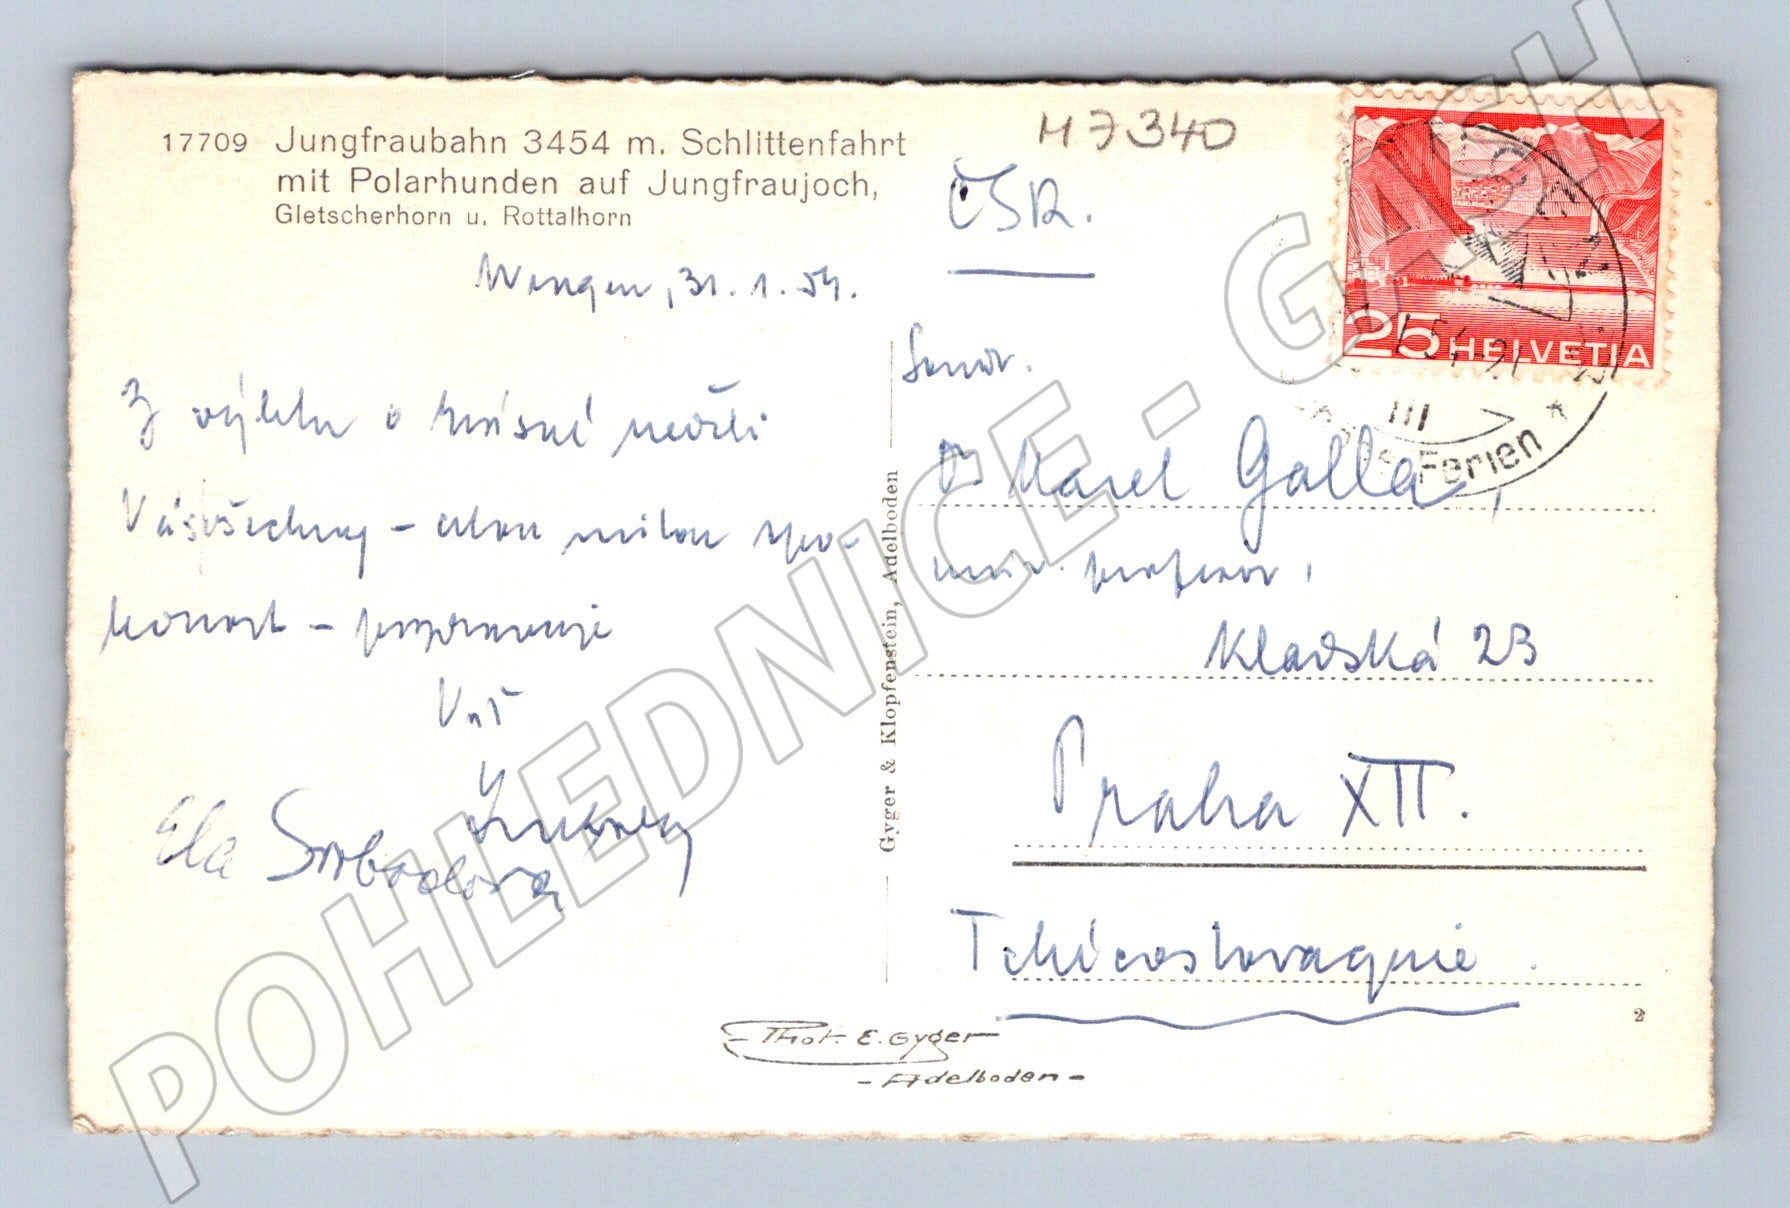 17709 Jungfraubahn 3454 m. Schlittenfahrt
mit Polarhunden auf Jungfraujoch,
Gletscherhorn u. Rottalhorn
H7340
ČSR.
Wengen, 31.1.54.
Z výletu v krásné neděli
Vás všechny – celou milou spo-
lečnost – pozdravuje
Váš
Ela Svobodová
25 HELVETIA
III
Ferien *
Dr Karel Galla,
univ. profesor,
Kladská 23
Praha XII.
Tchécoslovaquie
Gyger & Klopfenstein, Adelboden
Phot. E. Gyger
- Adelboden -
2
POHLEDNICE - GMISCH